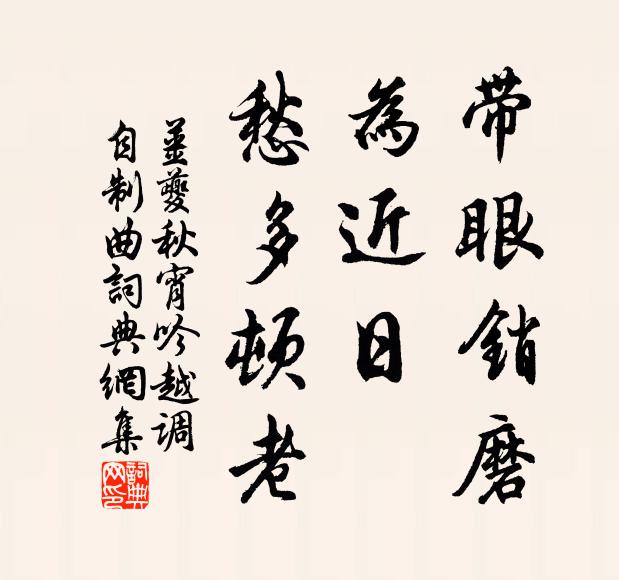 带眼銷磨
為近日
愁多頓老
姜夔秋宵吟越调
自制曲詞典網集
詞典网印